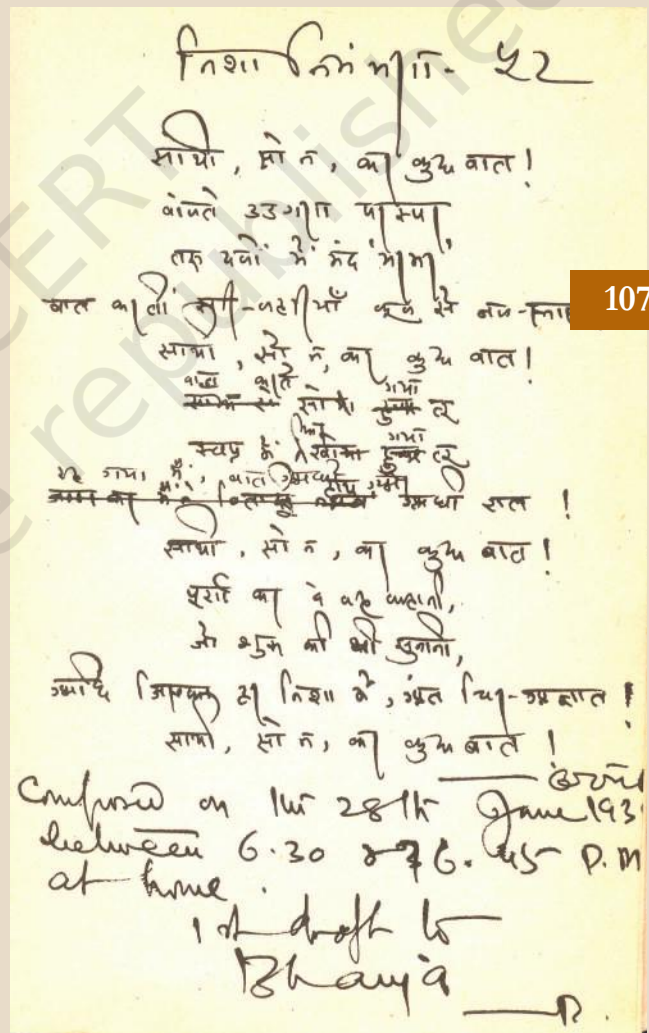 निशा निमंत्रण - ५२
साथी, सो न, कर कुछ बात!
बोलते उडुगण परस्पर,
तरु दलों में मंद मरमर,
बात करतीं सरि-लहरियाँ कूल से जल-
107
साथी, सो न, कर कुछ बात!
बात करते
सो गया तू
स्वप्न में फिर खो गया तू
रह गया मैं, बात आधी
आधी रात!
साथी, सो न, कर कुछ बात!
पूर्ण कर दे वह कहानी,
जो शुरू की थी सुनानी,
आदि जिसका हर निशा में, अंत चिर-अज्ञात!
साथी, सो न, कर कुछ बात!
Composed on the 28th June 193
between 6.30 & 6.45 P.M
at home.
1st draft to
Bhanja
NCERT
republished